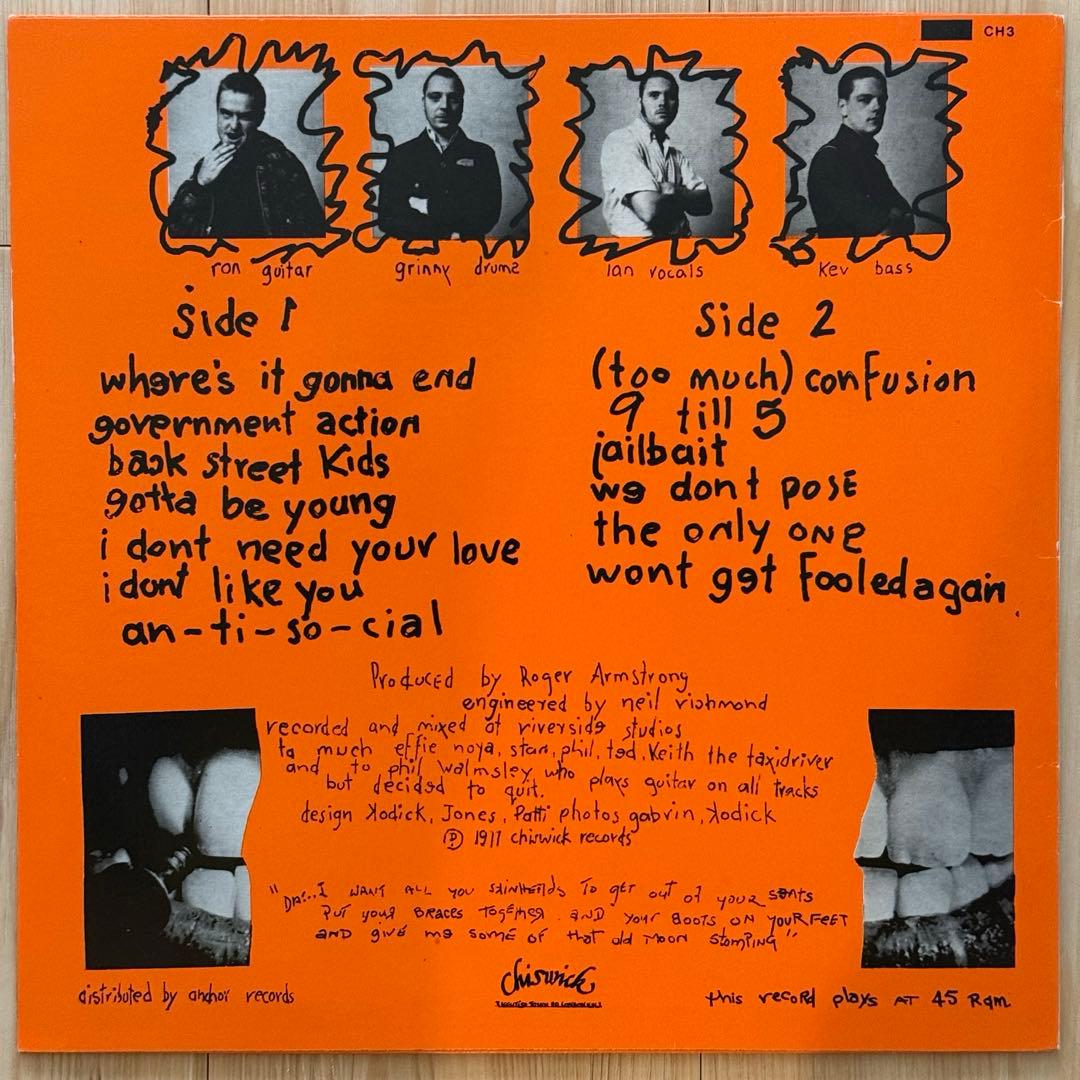 CH3
ron guitar
grinny drums
Ian vocals
Kev bass
Side 1
where's it gonna end
government action
back street Kids
gotta be young
i dont need your love
i dont like you
an-ti-so-cial
Side 2
(too much) confusion
9 till 5
jailbait
we dont pose
the only one
wont get fooled again
Produced by Roger Armstrong
engineered by neil richmond
recorded and mixed at riverside studios
ta much effie noya, stan, phil, ted, Keith the taxidriver
and to phil walmsley who plays guitar on all tracks
but decided to quit.
design Kodick, Jones, Patti photos gabrin, Kodick
℗ 1977 chiswick records
I WANT ALL YOU SKINHEADS TO GET OUT OF YOUR SEATS
PUT YOUR BRACES TOGETHER AND YOUR BOOTS ON YOUR FEET
AND GIVE ME SOME OF that old MOON STOMPING"
chiswick
distributed by anchor records
this record plays AT 45 Rpm